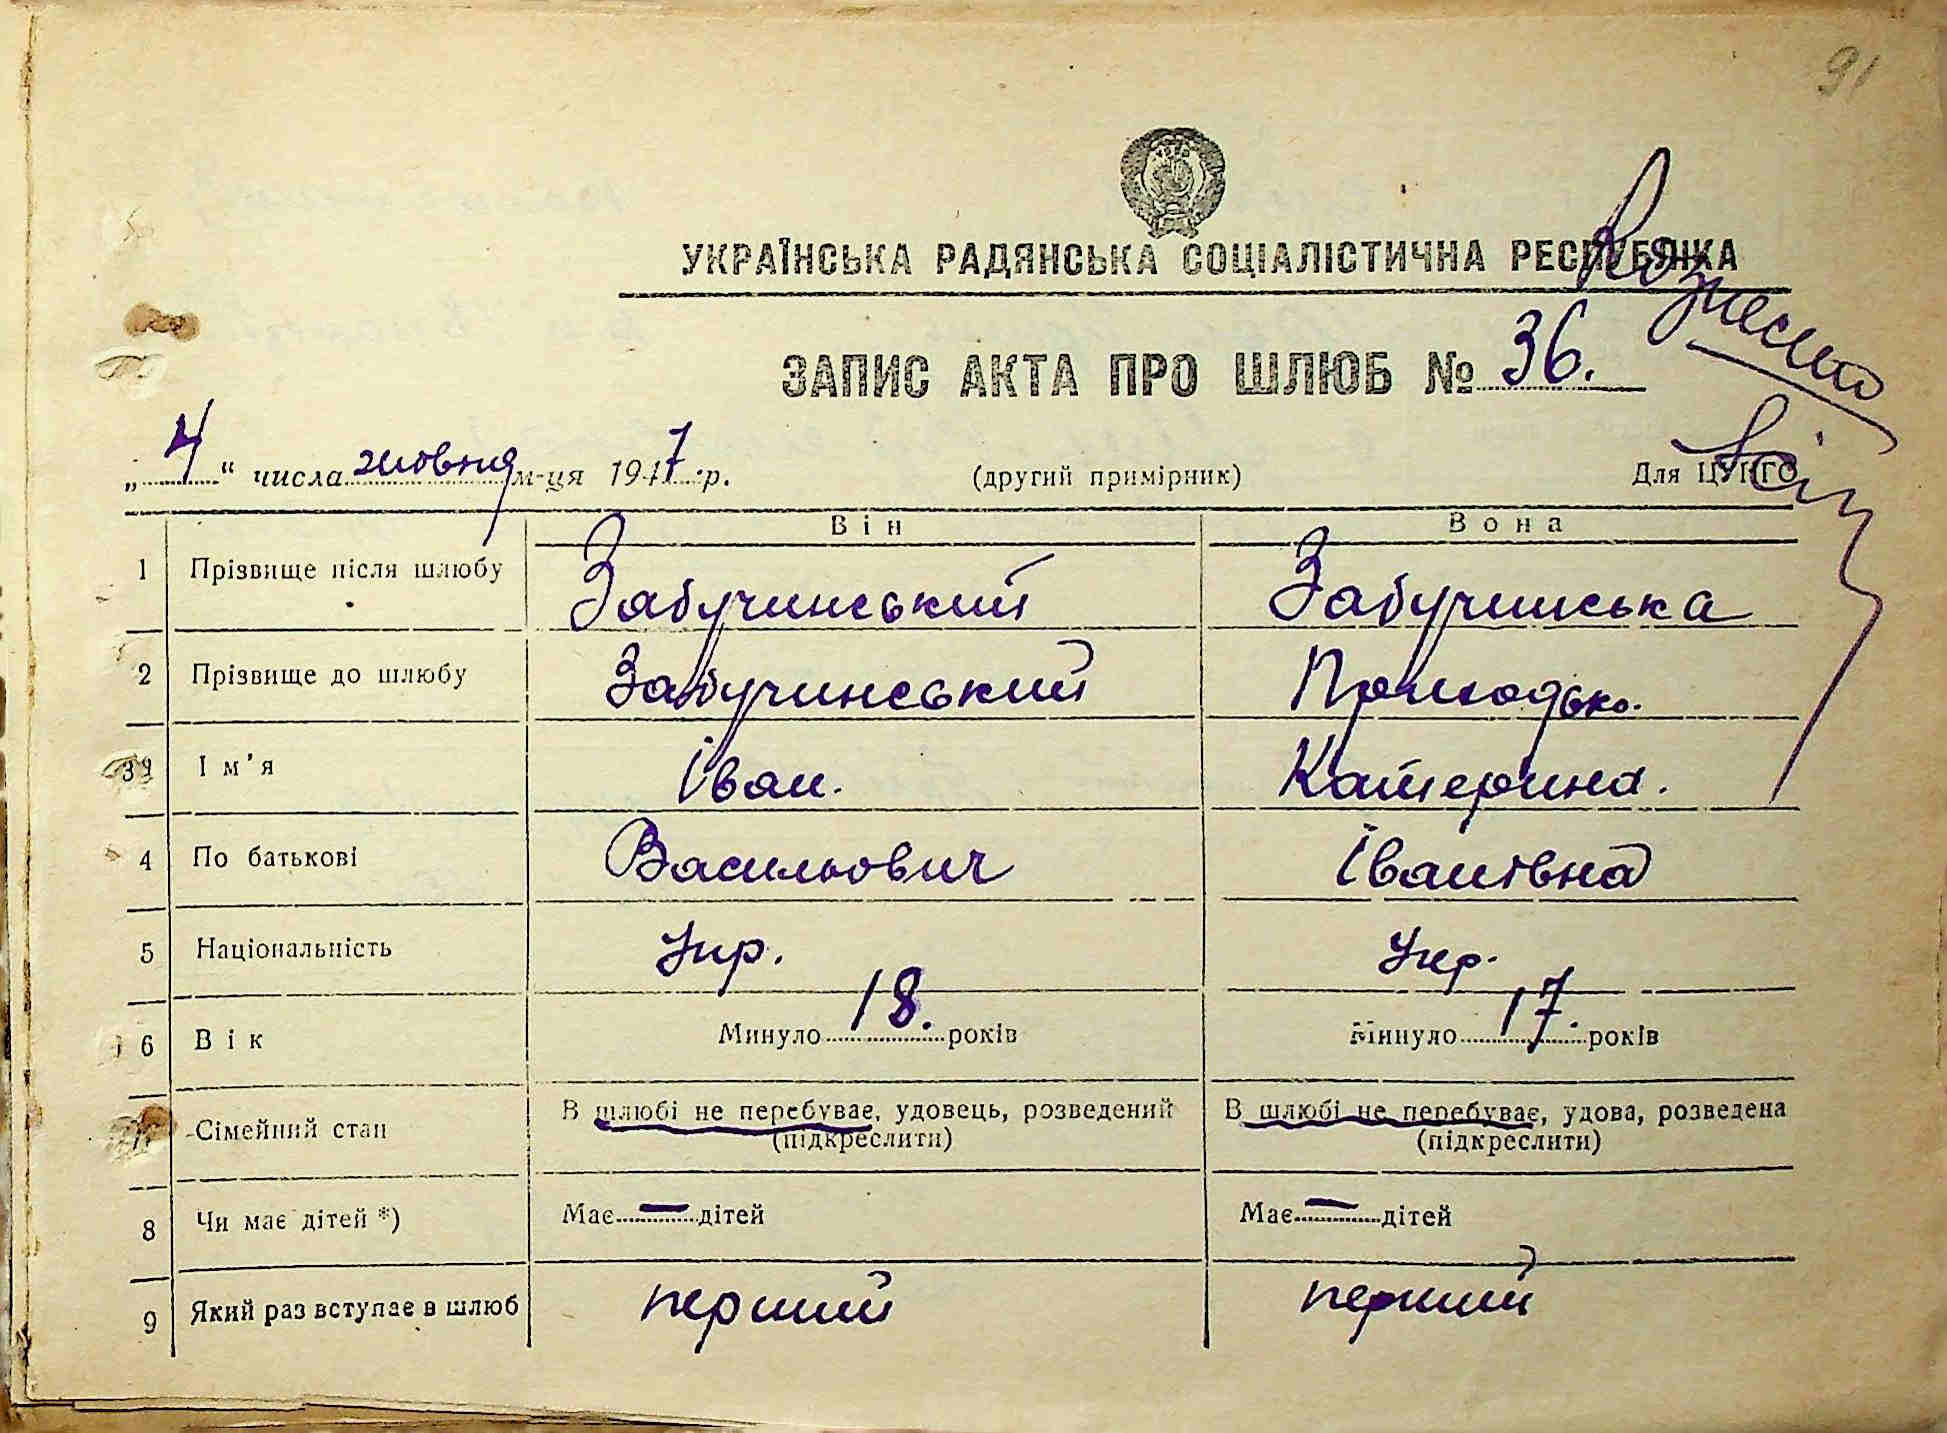 91
УКРАЇНСЬКА РАДЯНСЬКА СОЦІАЛІСТИЧНА РЕСПУБЛІКА
Рознесено
ЗАПИС АКТА ПРО ШЛЮБ № 36.
„ 4 “ числа жовтня м-ця 1947 р. (другий примірник) Для ЦУНГС
Він Вона
1 Прізвище після шлюбу Забучинський Забучинська
2 Прізвище до шлюбу Забучинський
3 Ім’я Іван. Катерина.
4 По батькові Васильович Іванівна
5 Національність Укр. Укр.
6 Вік Минуло 18. років Минуло 17. років
7 Сімейний стан В шлюбі не перебуває, удовець, розведений В шлюбі не перебуває, удова, розведена
(підкреслити) (підкреслити)
8 Чи має дітей *) Має — дітей Має — дітей
9 Який раз вступає в шлюб перший перший